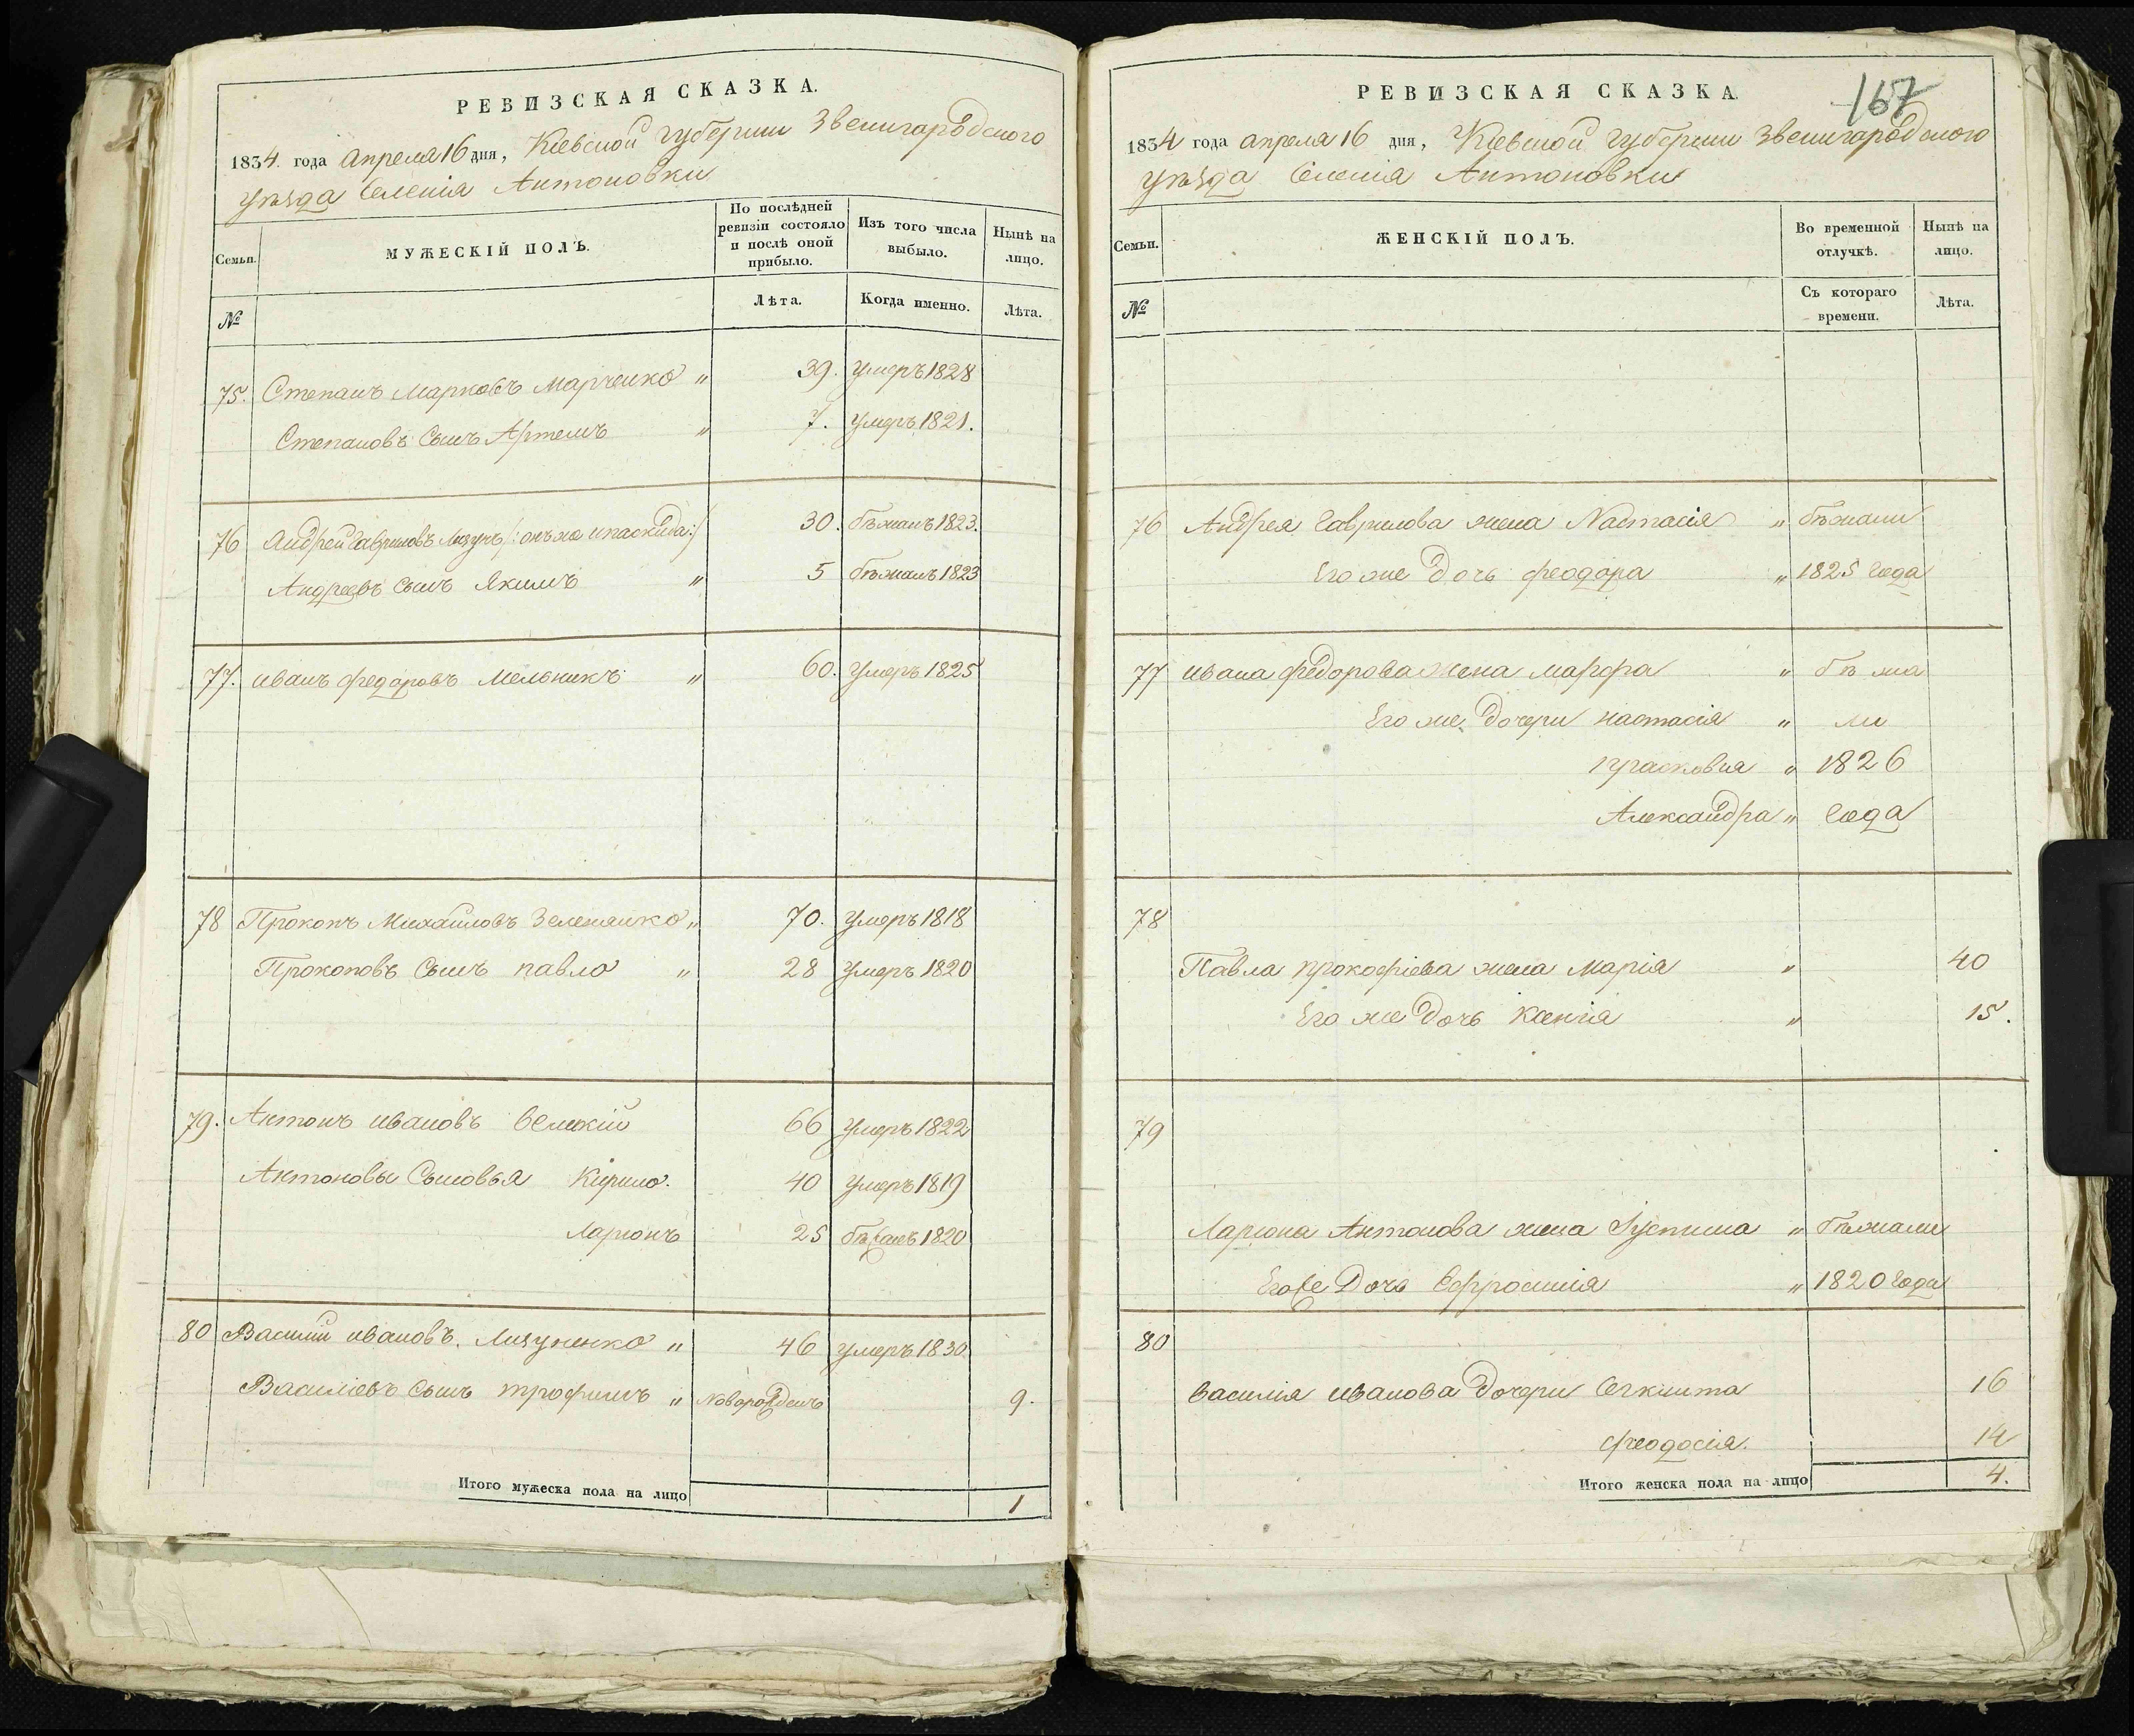 РЕВИЗСКАЯ СКАЗКА.
1834 года апреля 16 дня, Кіевской губерніи Звенигородского
уѣзда Селенія Антоновки
Семьи.
МУЖЕСКІЙ ПОЛЪ.
По послѣдней
ревизіи состояло
и послѣ оной
прибыло.
Изъ того числа
выбыло.
Нынѣ на
лицо.
№
Лѣта.
Когда именно.
Лѣта.
75. Степанъ Марковъ Марченко " 39. умеръ 1828
Степановъ Сынъ Артемъ " 7. умеръ 1821.
76 Андрей Гавриловъ Лизунъ /: онъ же и паскида :/ 30. бѣжалъ 1823.
Андреевъ сынъ Якимъ " 5 бѣжалъ 1823
77. иванъ федоровъ Мельникъ " 60. умеръ 1825
78 Прокопъ Михайловъ Зеленянко " 70. умеръ 1818
Прокоповъ Сынъ павло " 28 умеръ 1820
79. Антонъ ивановъ великій 66 умеръ 1822
Антоновы Сыновья Кирило. 40 умеръ 1819
Ларіонъ 25 бѣжалъ 1820
80 Василій ивановъ. Лизуненко " 46 умеръ 1830
Василіевъ Сынъ трофимъ " Новорожденъ 9.
Итого мужеска пола на лицо 1
167
РЕВИЗСКАЯ СКАЗКА.
1834 года апреля 16 дня, Кіевской губерніи Звенигородского
уѣзда Селенія Антоновки
Семьи.
ЖЕНСКІЙ ПОЛЪ.
Во временной
отлучкѣ.
Нынѣ на
лицо.
№
Съ котораго
времени.
Лѣта.
76 Андрея Гаврилова жена Настасія " бѣжали
Его же дочь феодора " 1825 года
77 ивана федорова жена марфа " бѣжа
Его же дочери настасія " ли
прасковия " 1826
Александра " года
78
Павла прокофіева жена марія " 40
Его же дочь ксенія " 15.
79
Ларіона Антонова жена Іустина " бѣжали
Его же дочь Ефросинія " 1820 года
80
василія иванова дочери 16
феодосія. 14
Итого женска пола на лицо 4.